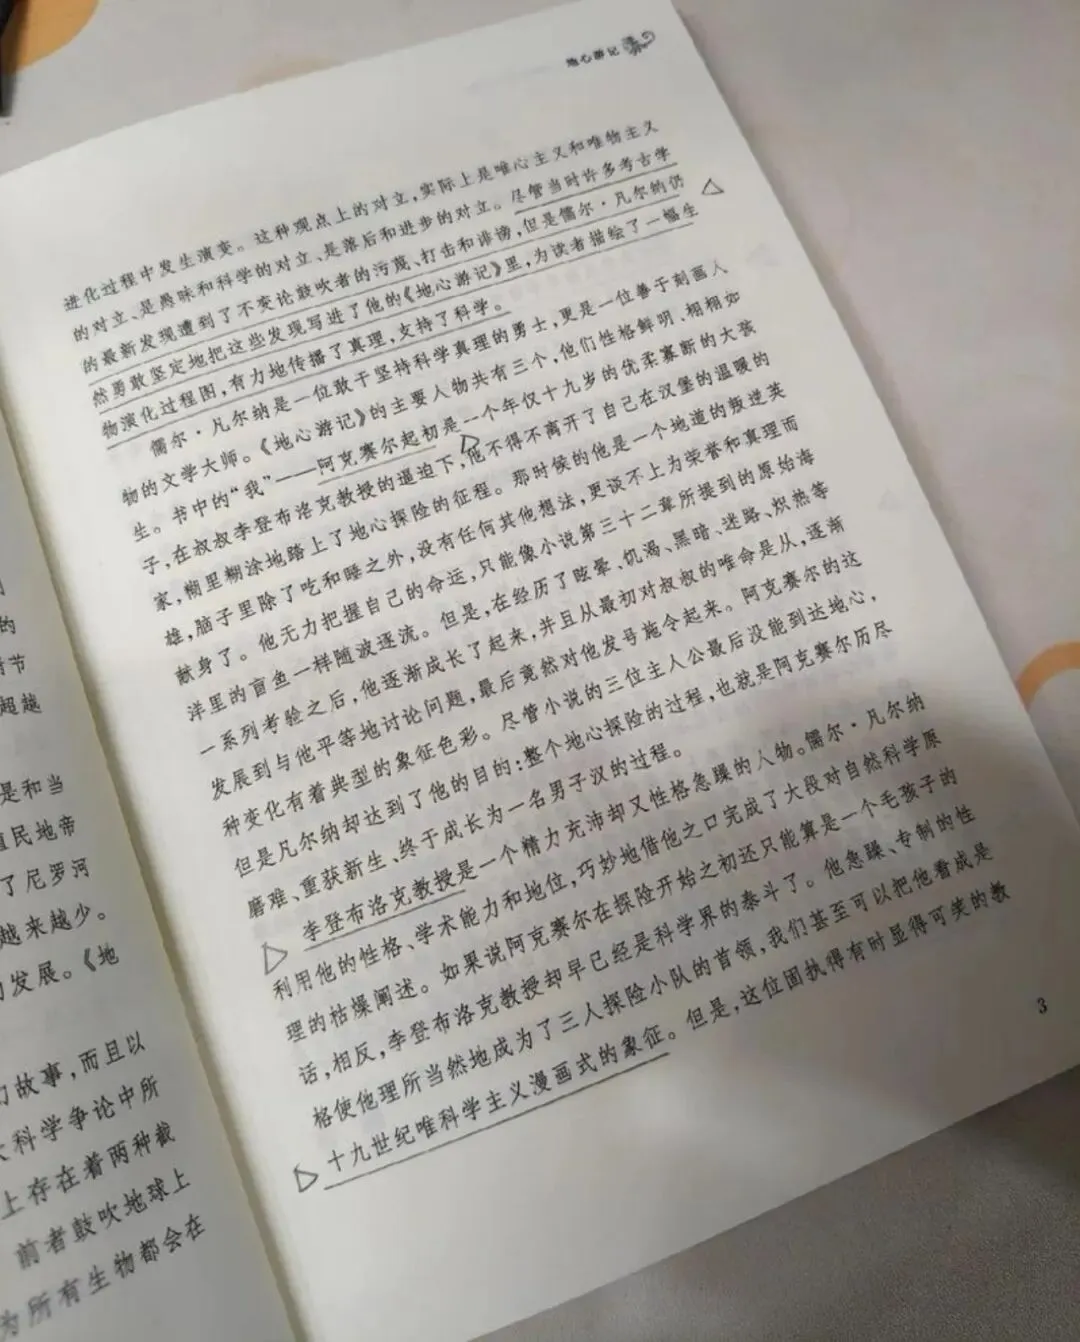 地心游记
进化过程中发生演变。这种观点上的对立,实际上是唯心主义和唯物主义
的对立、是愚昧和科学的对立、是落后和进步的对立。尽管当时许多考古学
的最新发现遭到了不变论鼓吹者的污蔑、打击和诽谤,但是儒尔·凡尔纳仍
然勇敢坚定地把这些发现写进了他的《地心游记》里,为读者描绘了一幅生
物演化过程图,有力地传播了真理,支持了科学。
儒尔·凡尔纳是一位敢于坚持科学真理的勇士,更是一位善于刻画人
物的文学大师。《地心游记》的主要人物共有三个,他们性格鲜明、栩栩如
生。书中的“我”——阿克赛尔起初是一个年仅十九岁的优柔寡断的大孩
子,在叔叔李登布洛克教授的逼迫下,他不得不离开了自己在汉堡的温暖的
家,糊里糊涂地踏上了地心探险的征程。那时候的他是一个地道的叛逆英
雄,脑子里除了吃和睡之外,没有任何其他想法,更谈不上为荣誉和真理而
献身了。他无力把握自己的命运,只能像小说第三十二章所提到的原始海
洋里的盲鱼一样随波逐流。但是,在经历了眩晕、饥渴、黑暗、迷路、炽热等
一系列考验之后,他逐渐成长了起来,并且从最初对叔叔的唯命是从,逐渐
发展到与他平等地讨论问题,最后竟然对他发号施令起来。阿克赛尔的这
种变化有着典型的象征色彩。尽管小说的三位主人公最后没能到达地心,
但是凡尔纳却达到了他的目的:整个地心探险的过程,也就是阿克赛尔历尽
磨难、重获新生、终于成长为一名男子汉的过程。
李登布洛克教授是一个精力充沛却又性格急躁的人物。儒尔·凡尔纳
利用他的性格、学术能力和地位,巧妙地借他之口完成了大段对自然科学原
理的枯燥阐述。如果说阿克赛尔在探险开始之初还只能算是一个毛孩子的
话,相反,李登布洛克教授却早已经是科学界的泰斗了。他急躁、专制的性
格使他理所当然地成为了三人探险小队的首领,我们甚至可以把他看成是
十九世纪唯科学主义漫画式的象征。但是,这位固执得有时显得可笑的教
3
的
节
超越
是和当
殖民地帝
了尼罗河
越来越少。
发展。《地
故事,而且以
科学争论中所
上存在着两种截
前者鼓吹地球上
为所有生物都会在